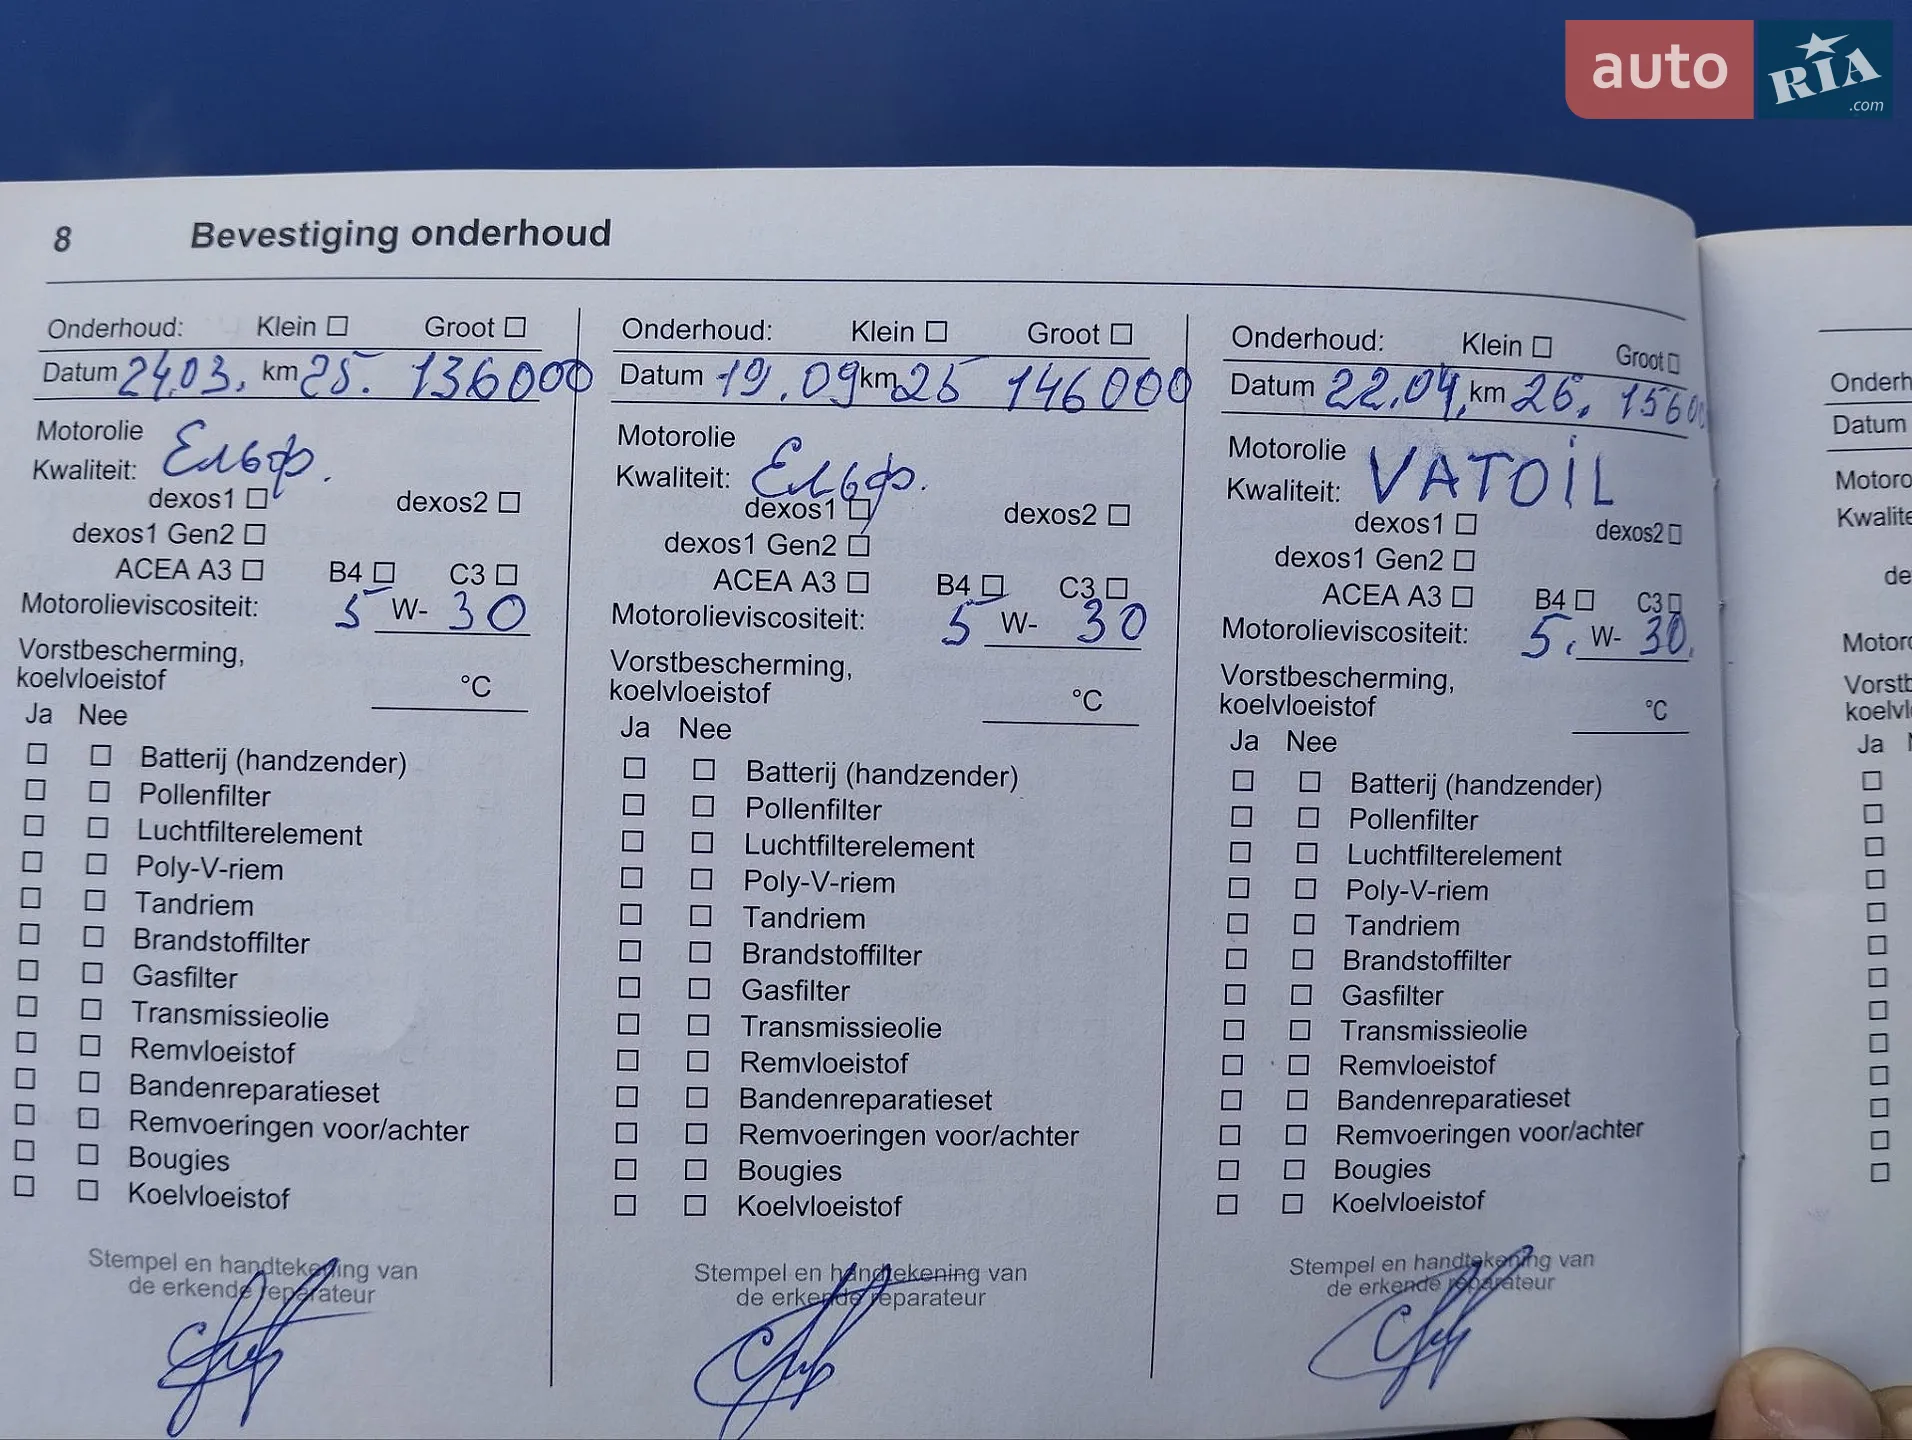 auto RIA .com
8 Bevestiging onderhoud
Onderhoud: Klein Groot
Datum 24.03. km 25. 136000
Motorolie
Kwaliteit: Ельф.
dexos1 dexos2
dexos1 Gen2
ACEA A3 B4 C3
Motorolieviscositeit: 5 W- 30
Vorstbescherming,
koelvloeistof °C
Ja Nee
Batterij (handzender)
Pollenfilter
Luchtfilterelement
Poly-V-riem
Tandriem
Brandstoffilter
Gasfilter
Transmissieolie
Remvloeistof
Bandenreparatieset
Remvoeringen voor/achter
Bougies
Koelvloeistof
Stempel en handtekening van
de erkende reparateur
Onderhoud: Klein Groot
Datum 19.09 km 25 146000
Motorolie
Kwaliteit: Ельф.
dexos1 dexos2
dexos1 Gen2
ACEA A3 B4 C3
Motorolieviscositeit: 5 W- 30
Vorstbescherming,
koelvloeistof °C
Ja Nee
Batterij (handzender)
Pollenfilter
Luchtfilterelement
Poly-V-riem
Tandriem
Brandstoffilter
Gasfilter
Transmissieolie
Remvloeistof
Bandenreparatieset
Remvoeringen voor/achter
Bougies
Koelvloeistof
Stempel en handtekening van
de erkende reparateur
Onderhoud: Klein Groot
Datum 22.04. km 26. 15600
Motorolie
Kwaliteit: VATOIL
dexos1 dexos2
dexos1 Gen2
ACEA A3 B4 C3
Motorolieviscositeit: 5. W- 30.
Vorstbescherming,
koelvloeistof °C
Ja Nee
Batterij (handzender)
Pollenfilter
Luchtfilterelement
Poly-V-riem
Tandriem
Brandstoffilter
Gasfilter
Transmissieolie
Remvloeistof
Bandenreparatieset
Remvoeringen voor/achter
Bougies
Koelvloeistof
Stempel en handtekening van
de erkende reparateur
Onderh
Datum
Motoro
Kwalite
de
Motoro
Vorstb
koelvl
Ja